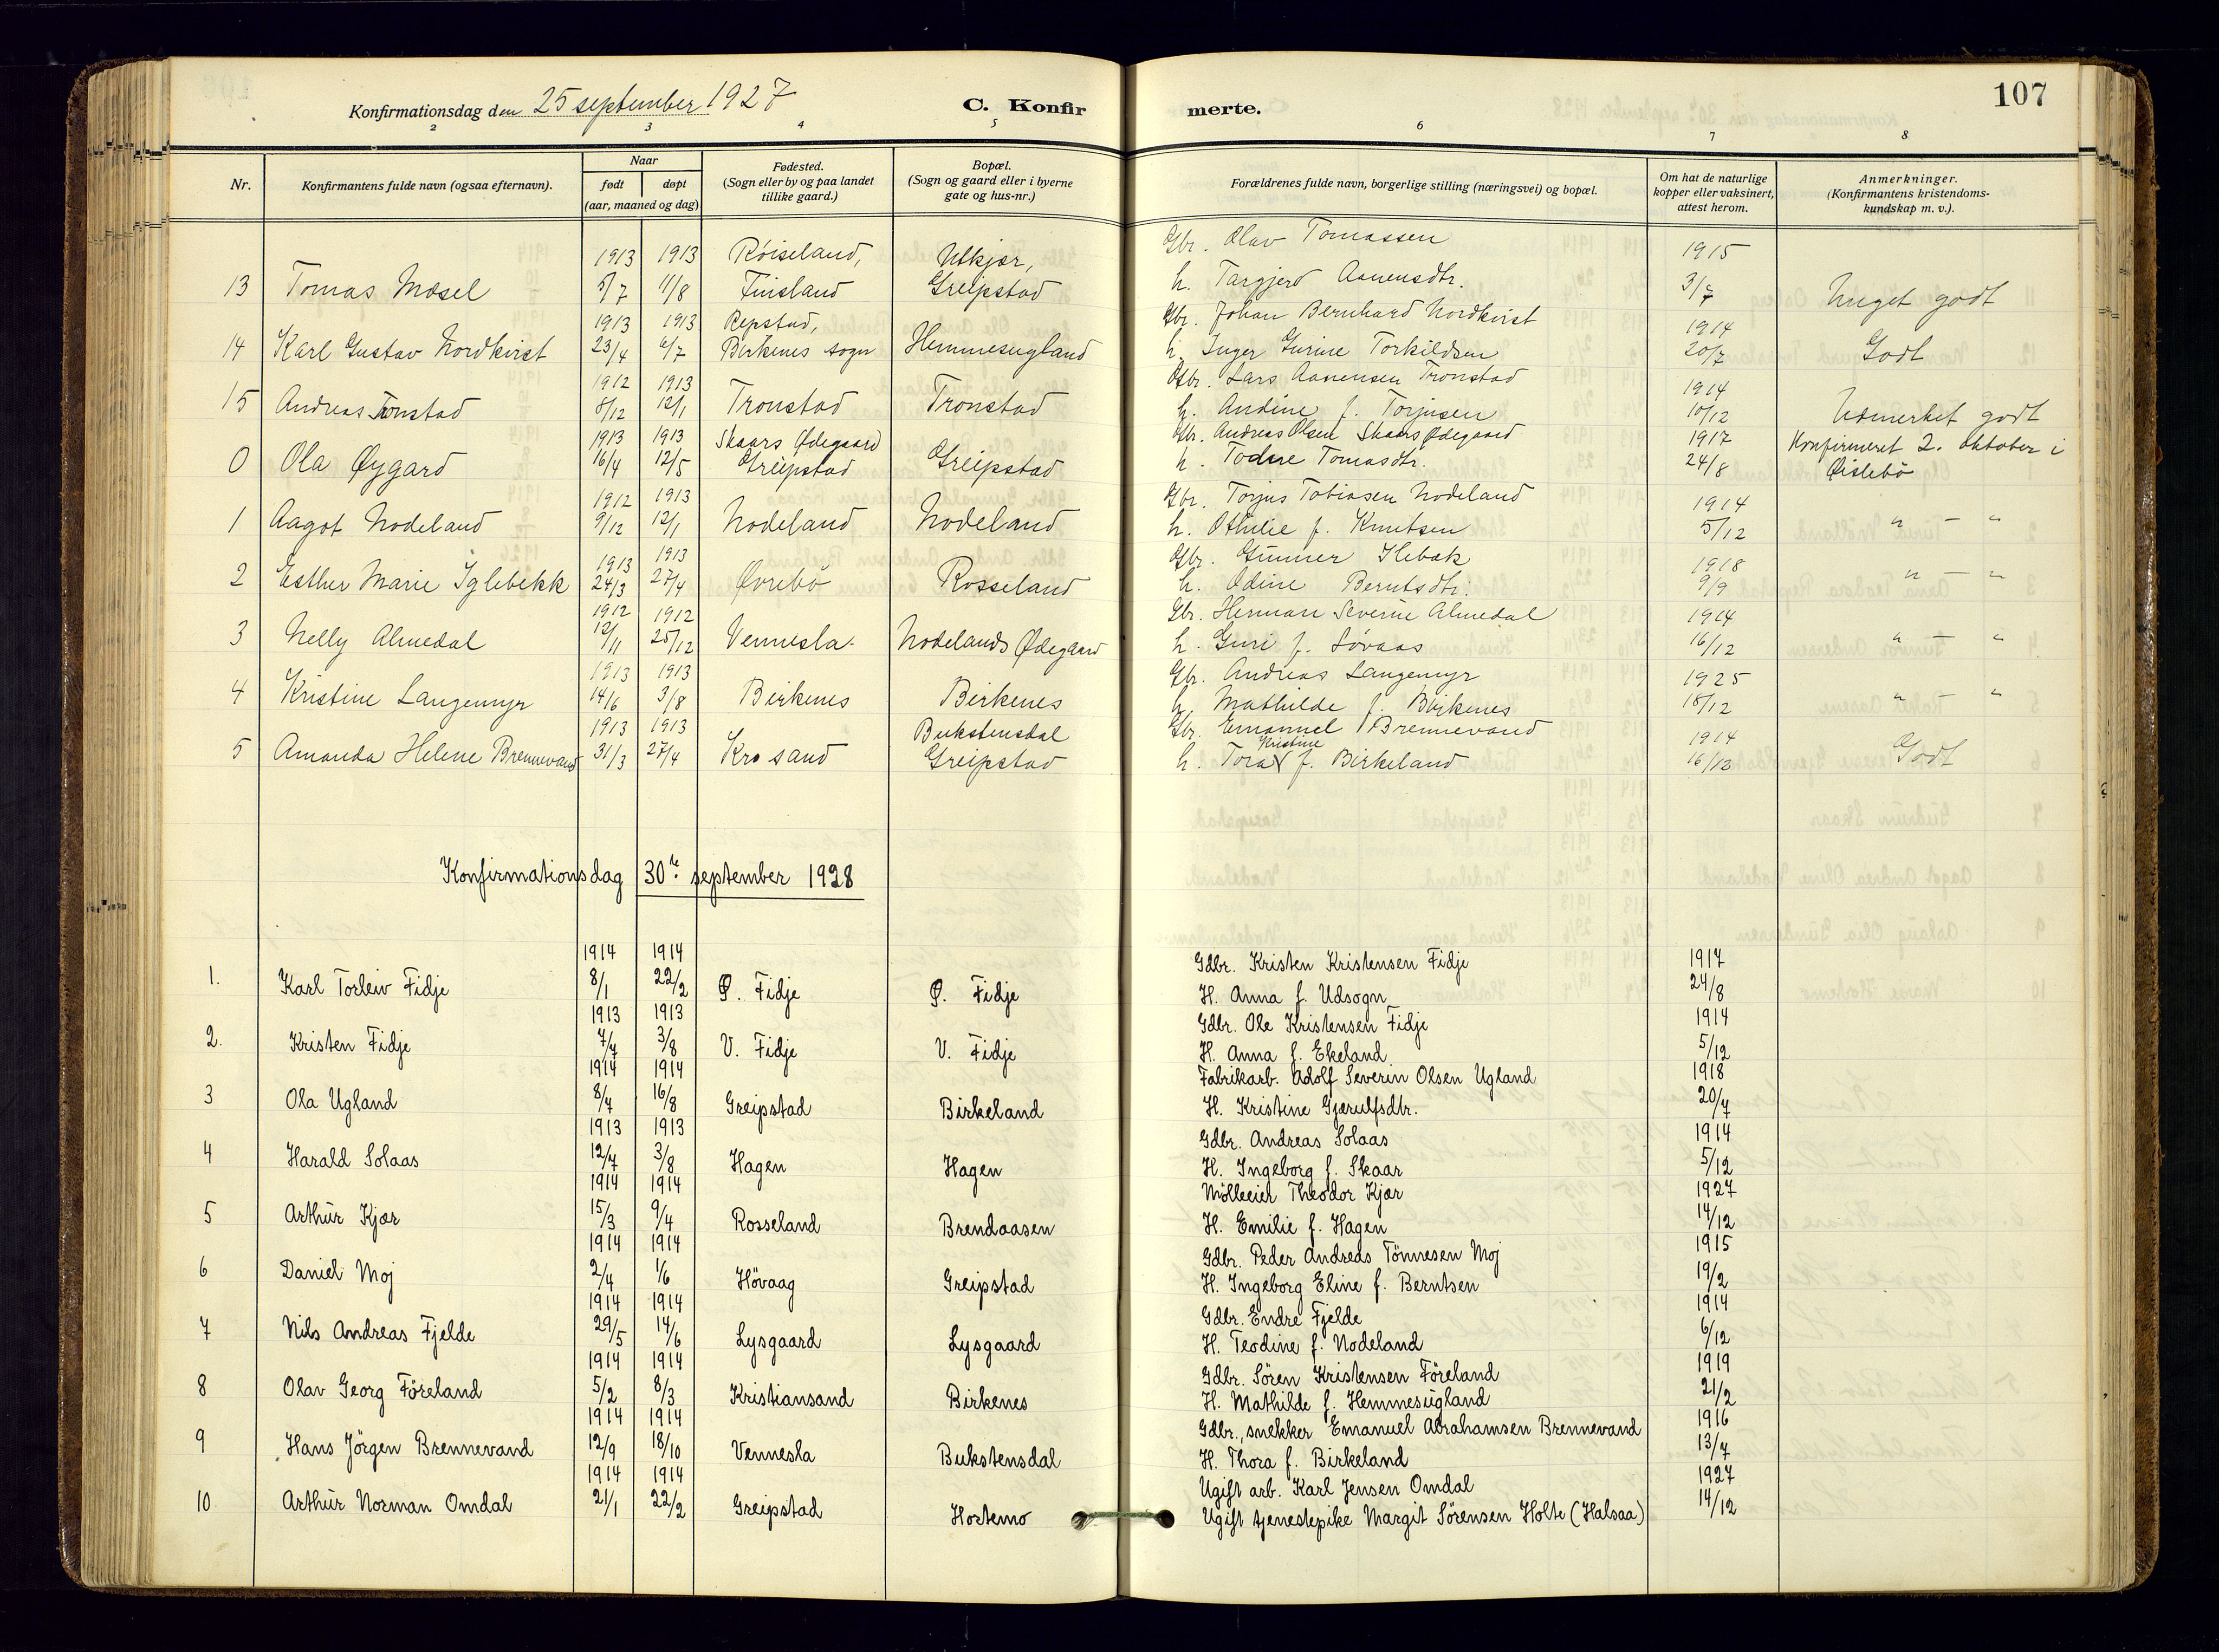 107
Konfirmationsdag den 25 september 1927
C. Konfirmerte.
2 3 4 5 6 7 8
Nr.
Konfirmantens fulde navn (ogsaa efternavn).
Naar
født døpt
(aar, maaned og dag)
Fødested.
(Sogn eller by og paa landet
tillike gaard.)
Bopæl.
(Sogn og gaard eller i byerne
gate og hus-nr.)
Forældrenes fulde navn, borgerlige stilling (næringsvei) og bopæl.
Om hat de naturlige
kopper eller vaksinert,
attest herom.
Anmerkninger.
(Konfirmantens kristendoms-
kundskap m. v.).
1913 1913 Røiseland, Utkjær, Gbr. Olav Tomassen 1915
13 Tomas Mosel 5/7 11/8 Finsland Greipstad h. Targjerd Aanensdtr. 3/7 Meget godt
1913 1913 Repstad, Gbr. Johan Bernhard Nordkvist 1914
14 Karl Gustav Nordkvist 23/4 6/7 Birkenes sogn Hemmesugland h. Inger Gurine Torkildsen 20/7 Godt
1912 1913 Gbr. Lars Aanensen Tronstad 1914
15 Andreas Tronstad 8/12 12/1 Tronstad Tronstad h. Andine f. Torjusen 10/12 Udmerket godt
1913 1913 Skaars Ødegaard Gbr. Andreas Olsen Skaars Ødegaard 1917 Konfirmeret 2. oktober i
0 Ola Øygard 16/4 12/5 Greipstad Greipstad h. Todne Tomasdtr. 24/8 Øislebö
1912 1913 Gbr. Torjus Tobiasen Nodeland 1914
1 Aagot Nodeland 9/12 12/1 Nodeland Nodeland h. Othilie f. Knutsen 5/12 " - "
1913 1913 Gbr. Gunner Ilebæk 1918
2 Esther Marie Iglebekk 24/3 27/4 Øvrebö Rosseland h. Odine Berntsdtr. 9/9 " - "
1912 1912 Gbr. Herman Severin Almedal 1914
3 Nelly Almedal 12/11 25/12 Vennesla. Nodelands Ødegaard h. Guri f. Løvaas 16/12 " - "
1913 1913 Gbr. Andreas Langemyr 1925
4 Kristine Langemyr 14/6 3/8 Birkenes Birkenes h. Mathilde f. Birkenes 18/12 " - "
1913 1913 Bukstensdal Gbr. Emanuel Brennevand 1914
Kristine
5 Amanda Helene Brennevand 31/3 27/4 Kr. sand Greipstad h. Tora f. Birkeland 16/12 Godt
Konfirmationsdag 30te september 1928
1914 1914 Gdbr. Kristen Kristensen Fidje 1917
1. Karl Torleiv Fidje 8/1 22/2 Ø. Fidje Ø. Fidje H. Anna f. Udsogn 24/8
1913 1913 Gdbr. Ole Kristensen Fidje 1914
2. Kristen Fidje 7/7 3/8 V. Fidje V. Fidje H. Anna f. Ekeland 5/12
1914 1914 Fabrikarb. Adolf Severin Olsen Ugland 1918
3 Ola Ugland 8/7 16/8 Greipstad Birkeland H. Kristine Gjærulfsdtr. 20/7
1913 1913 Gdbr. Andreas Solaas 1914
4 Harald Solaas 12/7 3/8 Hagen Hagen H. Ingeborg f. Skaar 5/12
1914 1914 Mölleeier Theodor Kjær 1927
5 Arthur Kjær 15/3 9/4 Rosseland Brendaasen H. Emilie f. Hagen 14/12
1914 1914 Gdbr. Peder Andreas Tönnesen Moj 1915
6 Daniel Moj 2/4 1/6 Hövaag Greipstad H. Ingeborg Eline f. Berntsen 19/2
1914 1914 Gdbr. Endre Fjelde 1914
7 Nils Andreas Fjelde 29/5 14/6 Lysgaard Lysgaard H. Teodine f. Nodeland 6/12
1914 1914 Gdbr. Sören Kristensen Föreland 1919
8 Olav Georg Föreland 5/2 8/3 Kristiansand Birkenes H. Mathilde f. Hemmesugland 21/2
1914 1914 Gdbr., snekker Emanuel Abrahamsen Brennevand 1916
9 Hans Jörgen Brennevand 12/9 18/10 Vennesla Bukstensdal H. Thora f. Birkeland 13/7
1914 1914 Ugift arb. Karl Jensen Omdal 1927
10 Arthur Norman Omdal 21/1 22/2 Greipstad Hortemo Ugift tjenestepike Margit Sörensen Holte (Halsaa) 14/12